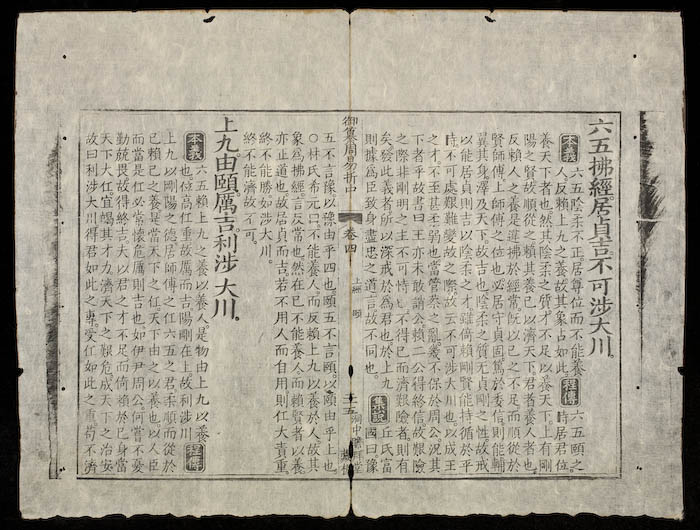 六五拂經居貞吉不可涉大川。
本義 六五陰柔不正居尊位而不能養
人反賴上九之養故其象占如此 程傳 六五頤之
時居君位
養天下者也然其陰柔之質才不足以養天下上有剛
陽之賢故順從之賴其養已以濟天下君者養人者也
反賴人之養是違拂於經常既以己之不足而順從於
賢師傅上師傅之位也必居守貞固篤於委信則能輔
翼其身澤及天下故吉也陰柔之質无貞剛之性故戒
以能居貞則吉以陰柔之才雖倚賴剛賢能持循於平
時不可處艱難變故之際故云不可涉大川也以成王
之才不至甚柔弱也當管蔡之亂幾不保於周公況其
下者乎故書曰王亦未敢誚公賴二公得終信故艱險
之際非剛明之主不可恃也不得已而濟艱險者則有
矣發此義者所以深戒於爲君也於上九
則據爲臣致身盡忠之道言故不同也。 集說 丘氏富
國曰豫
御纂周易折中 卷四 上經 頤 三十五
五不言豫以豫由乎四也頤五不言頤以頤由乎上也
○林氏希元曰不能養人而反賴上九以養於人故其
象爲拂經言反常也然在己不能養人而賴賢者以養
亦正道也故居貞而吉若不用人而自用則任大責重
終不能勝如涉大川。
終不能濟故不可。
上九由頤厲吉利涉大川。
本義 六五賴上九之養以養人是物由上九以養
也位高任重故厲而吉陽剛在上故利涉川 程傳
上九以剛陽之德居師傅之任六五之君柔順而從於
已賴已之養是當天下之任天下由之以養也以人臣
而當是任必常懷危厲則吉也如伊尹周公何嘗不憂
勤兢畏故得終吉夫以君之才不足而倚賴於已身當
天下大任宜竭其才力濟天下之艱危成天下之治安
故曰利涉大川得君如此之專受任如此之重苟不濟